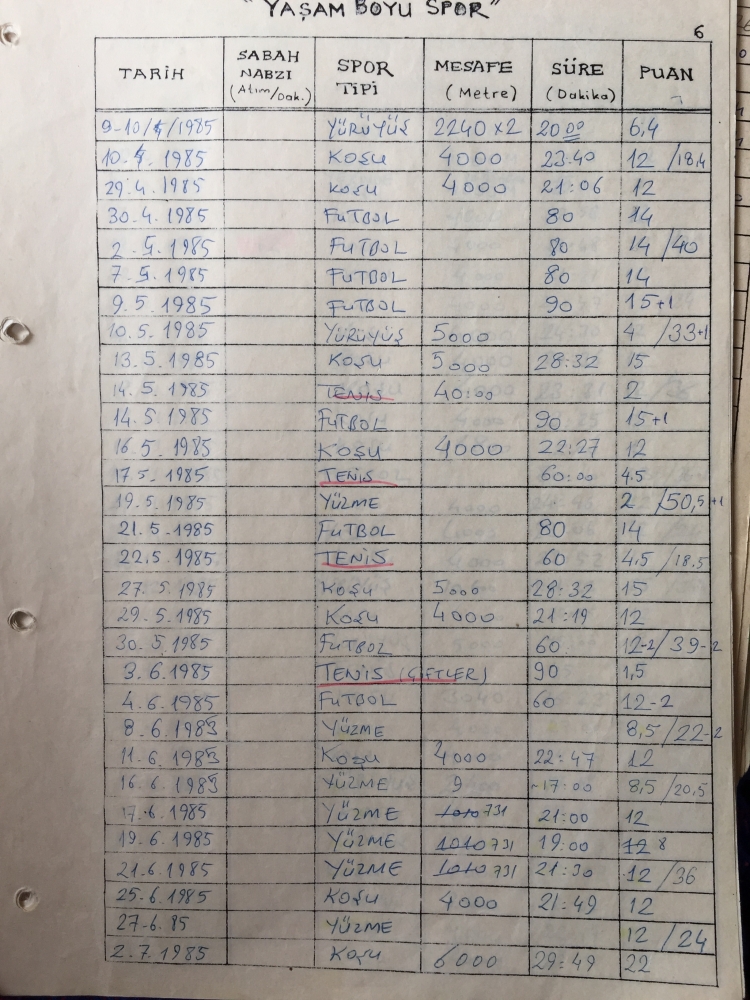 "YAŞAM BOYU SPOR"
6
TARİH SABAH NABZI (Atım/Dak.) SPOR TİPİ MESAFE (Metre) SÜRE (Dakika) PUAN
9-10/4/1985 YÜRÜYÜŞ 2240 x2 20 00 6,4
10.4.1985 KOŞU 4000 23:40 12 /18,4
29.4.1985 KOŞU 4000 21:06 12
30.4.1985 FUTBOL 80 14
2.5.1985 FUTBOL 80 14 /40
7.5.1985 FUTBOL 80 14
9.5.1985 FUTBOL 90 15+1
10.5.1985 YÜRÜYÜŞ 5000 4 /33+1
13.5.1985 KOŞU 5000 28:32 15
14.5.1985 TENİS 40:00 2
14.5.1985 FUTBOL 90 15+1
16.5.1985 KOŞU 4000 22:27 12
17.5.1985 TENİS 60:00 4.5
19.5.1985 YÜZME 2 /50,5+1
21.5.1985 FUTBOL 80 14
22.5.1985 TENİS 60 4,5 /18.5
27.5.1985 KOŞU 5000 28:32 15
29.5.1985 KOŞU 4000 21:19 12
30.5.1985 FUTBOL 60 12-2/39-2
3.6.1985 TENİS (ÇİFTLER) 90 1,5
4.6.1985 FUTBOL 60 12-2
8.6.1985 YÜZME 8,5/22-2
11.6.1985 KOŞU 4000 22:47 12
16.6.1985 YÜZME 9 ~17:00 8,5/20,5
17.6.1985 YÜZME 1010 731 21:00 12
19.6.1985 YÜZME 1010 731 19:00 12 8
21.6.1985 YÜZME 1010 731 21:30 12 /36
25.6.1985 KOŞU 4000 21:49 12
27-6.85 YÜZME 12 /24
2.7.1985 KOŞU 6000 29:49 22